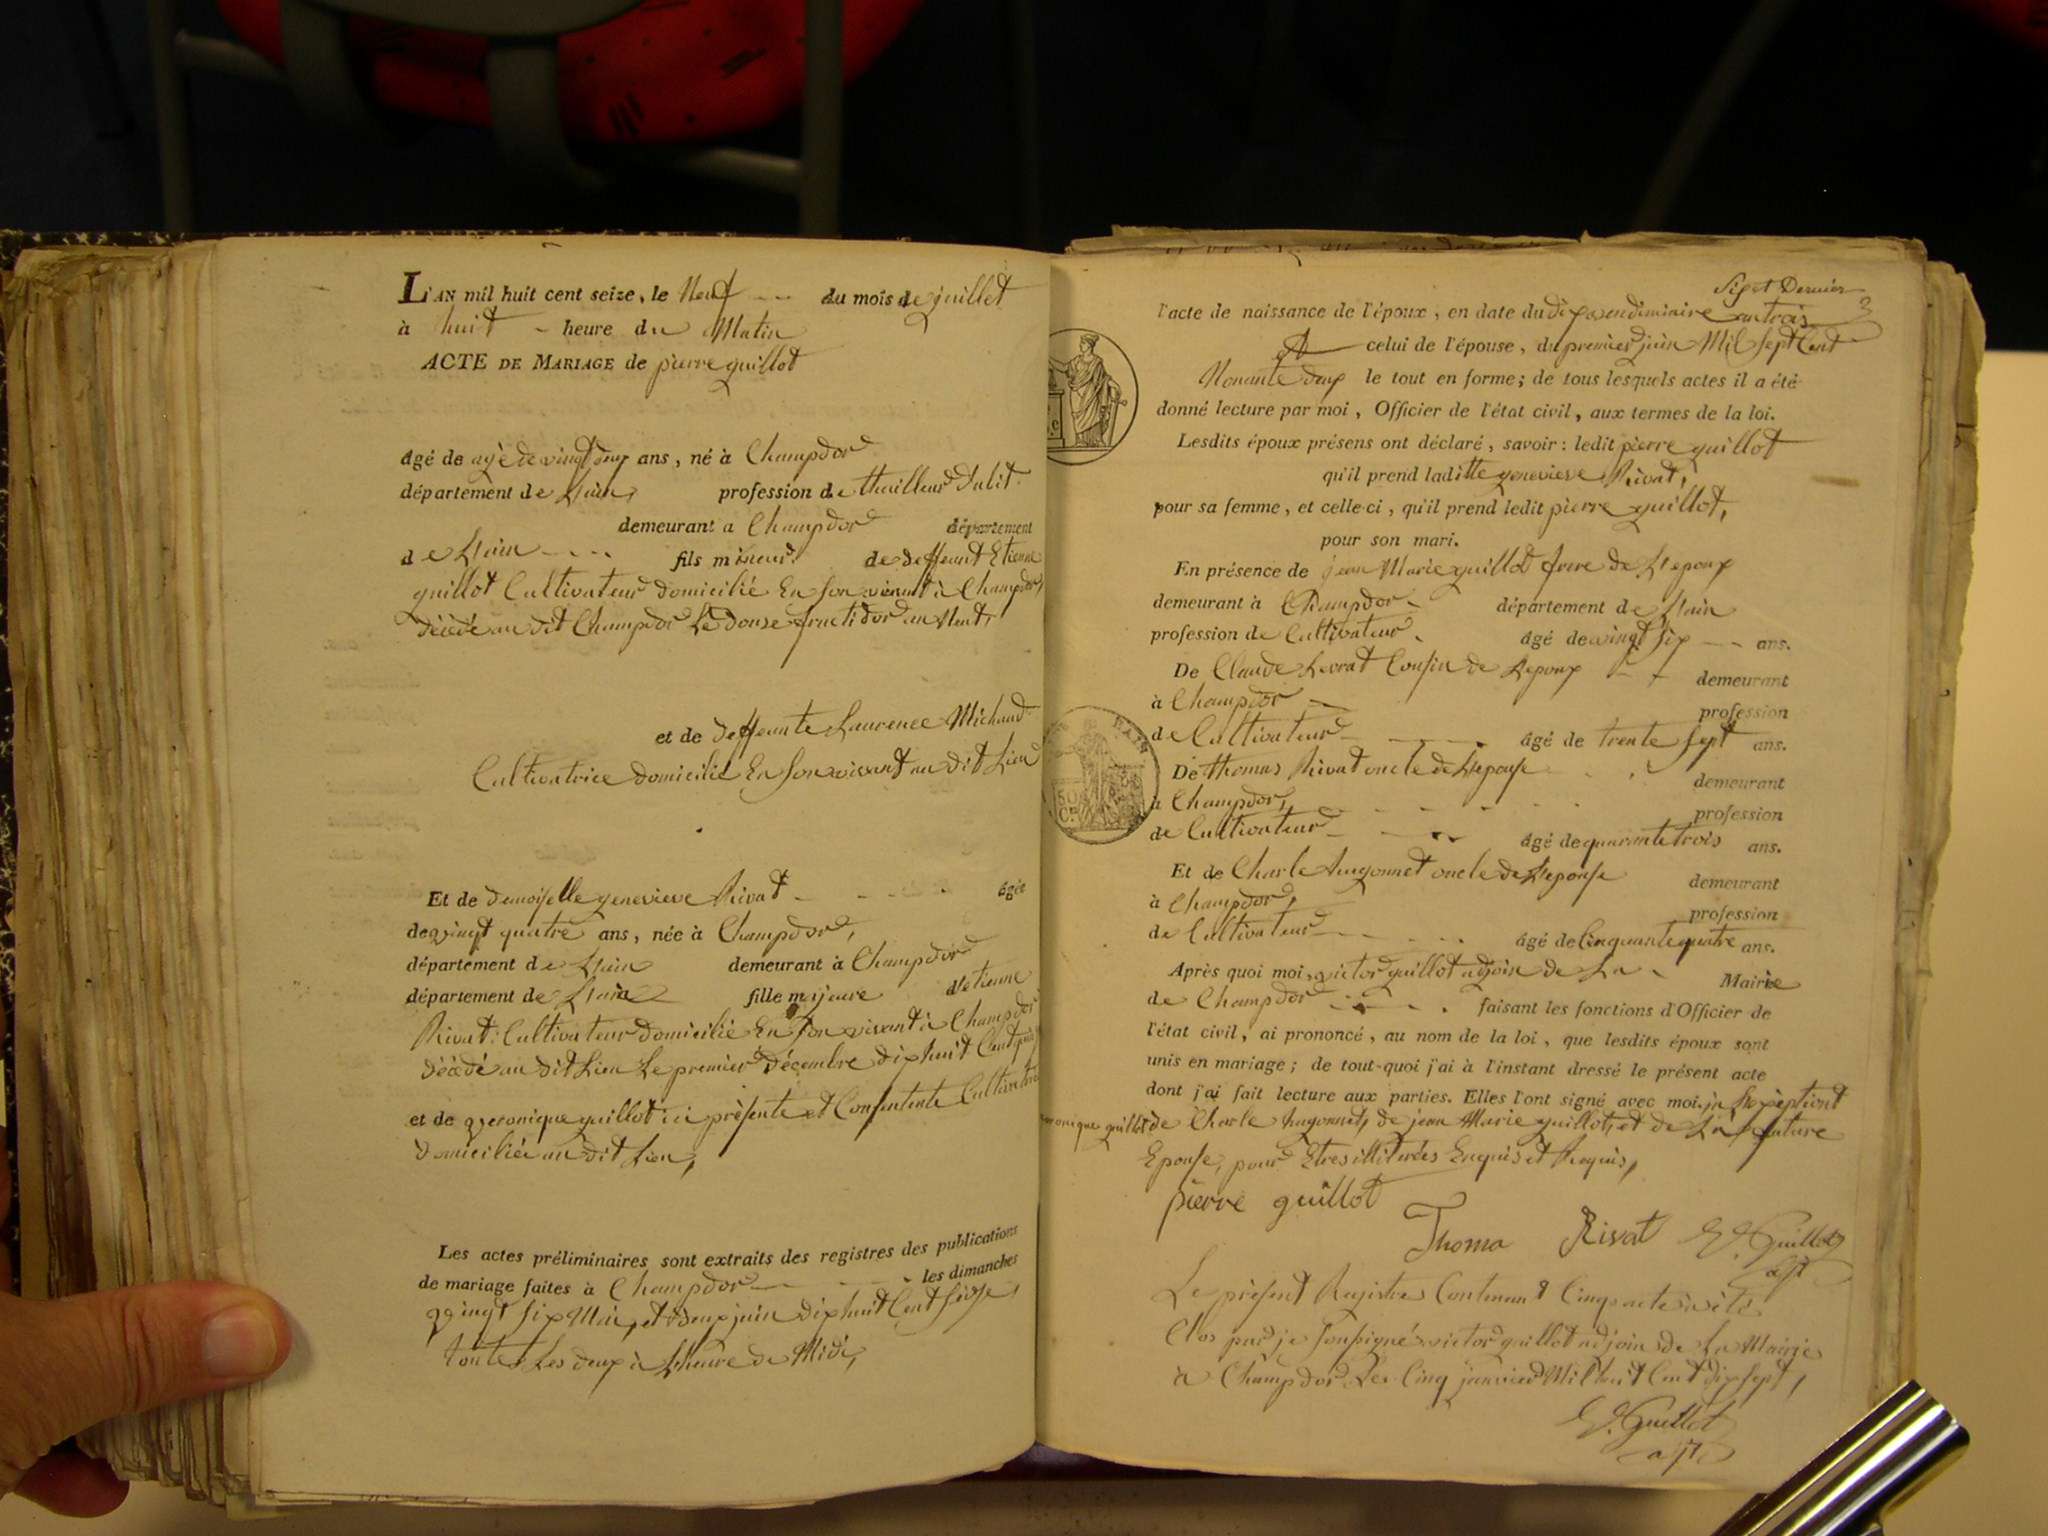 L'AN mil huit cent seize, le Neuf du mois de juillet
à huit heure du Matin
ACTE DE MARIAGE de pierre guillot
âgé de agé de vingt deux ans, né à Champdor
département de L'ain profession de thailleur d'abit
demeurant a Champdor département
de L'ain fils mineur de deffeunt Etienne
guillot Cultivateur domicilié En son vivant à Champdor,
décédé au dit Champdor Le douse fructidor an
et de deffeunte Laurence Michaud
Cultivatrice domicilié En son vivant au dit Lieu
Et de demoiselle genevieve Rivat âgée
de vingt quatre ans, née à Champdor,
département de L'ain demeurant à Champdor
département de L'ain fille majeure d'etienne
Rivat Cultivateur domicilié En son vivant à Champdor
décédé au dit Lieu Le premier décembre dixhuit Cent
et de veronique guillot ici présente et Consentente Cultivatrice
domiciliée au dit Lieu,
Les actes préliminaires sont extraits des registres des publications
de mariage faites à Champdor les dimanches
vingt six Mai, et deux juin dixhuit Cent seize,
toutes Les deux à L'heure de Midi,
Sieget Dernier
3
l'acte de naissance de l'époux, en date du dix vendimiaire an trois
et celui de l'épouse, du premier juin Mil sept Cent
Nonante deux le tout en forme; de tous lesquels actes il a été
donné lecture par moi, Officier de l'état civil, aux termes de la loi.
Lesdits époux présens ont déclaré, savoir: ledit pierre guillot
qu'il prend laditte genevieve Rivat,
pour sa femme, et celle-ci, qu'il prend ledit pierre guillot,
pour son mari.
En présence de jean Marie guillot frere de L'epoux
demeurant à Champdor département de L'ain
profession de Cultivateur âgé de vingt six ans.
De Claude Levrat Cousin de L'epoux demeurant
à Champdor profession
de Cultivateur âgé de trente sept ans.
De thomas Rivat oncle de L'epouse demeurant
à Champdor, profession
de Cultivateur âgé de quarante trois ans.
Et de Charle hugonnet oncle de L'epouse demeurant
à Champdor, profession
de Cultivateur âgé de Cinquante quatre ans.
Après quoi moi, victor guillot adjoin de La Mairie
de Champdor faisant les fonctions d'Officier de
l'état civil, ai prononcé, au nom de la loi, que lesdits époux sont
unis en mariage; de tout-quoi j'ai à l'instant dressé le présent acte
dont j'ai fait lecture aux parties. Elles l'ont signé avec moi. à L'exeptiont
veronique guillot de Charle hugonnet, de jean Marie guillot, et de La future
Epouse, pour Etres illiterés Enquis et Requis,
pierre guillot
Thoma Rivat V. Guillot
ajt
Le présent Registre Contenant Cinq acte à été
Clos par je soussigné victor guillot adjoin de La Mairie
à Champdor Le Cinq janvier Mil huit Cent dix sept,
V. Guillot
ajt
50
C.